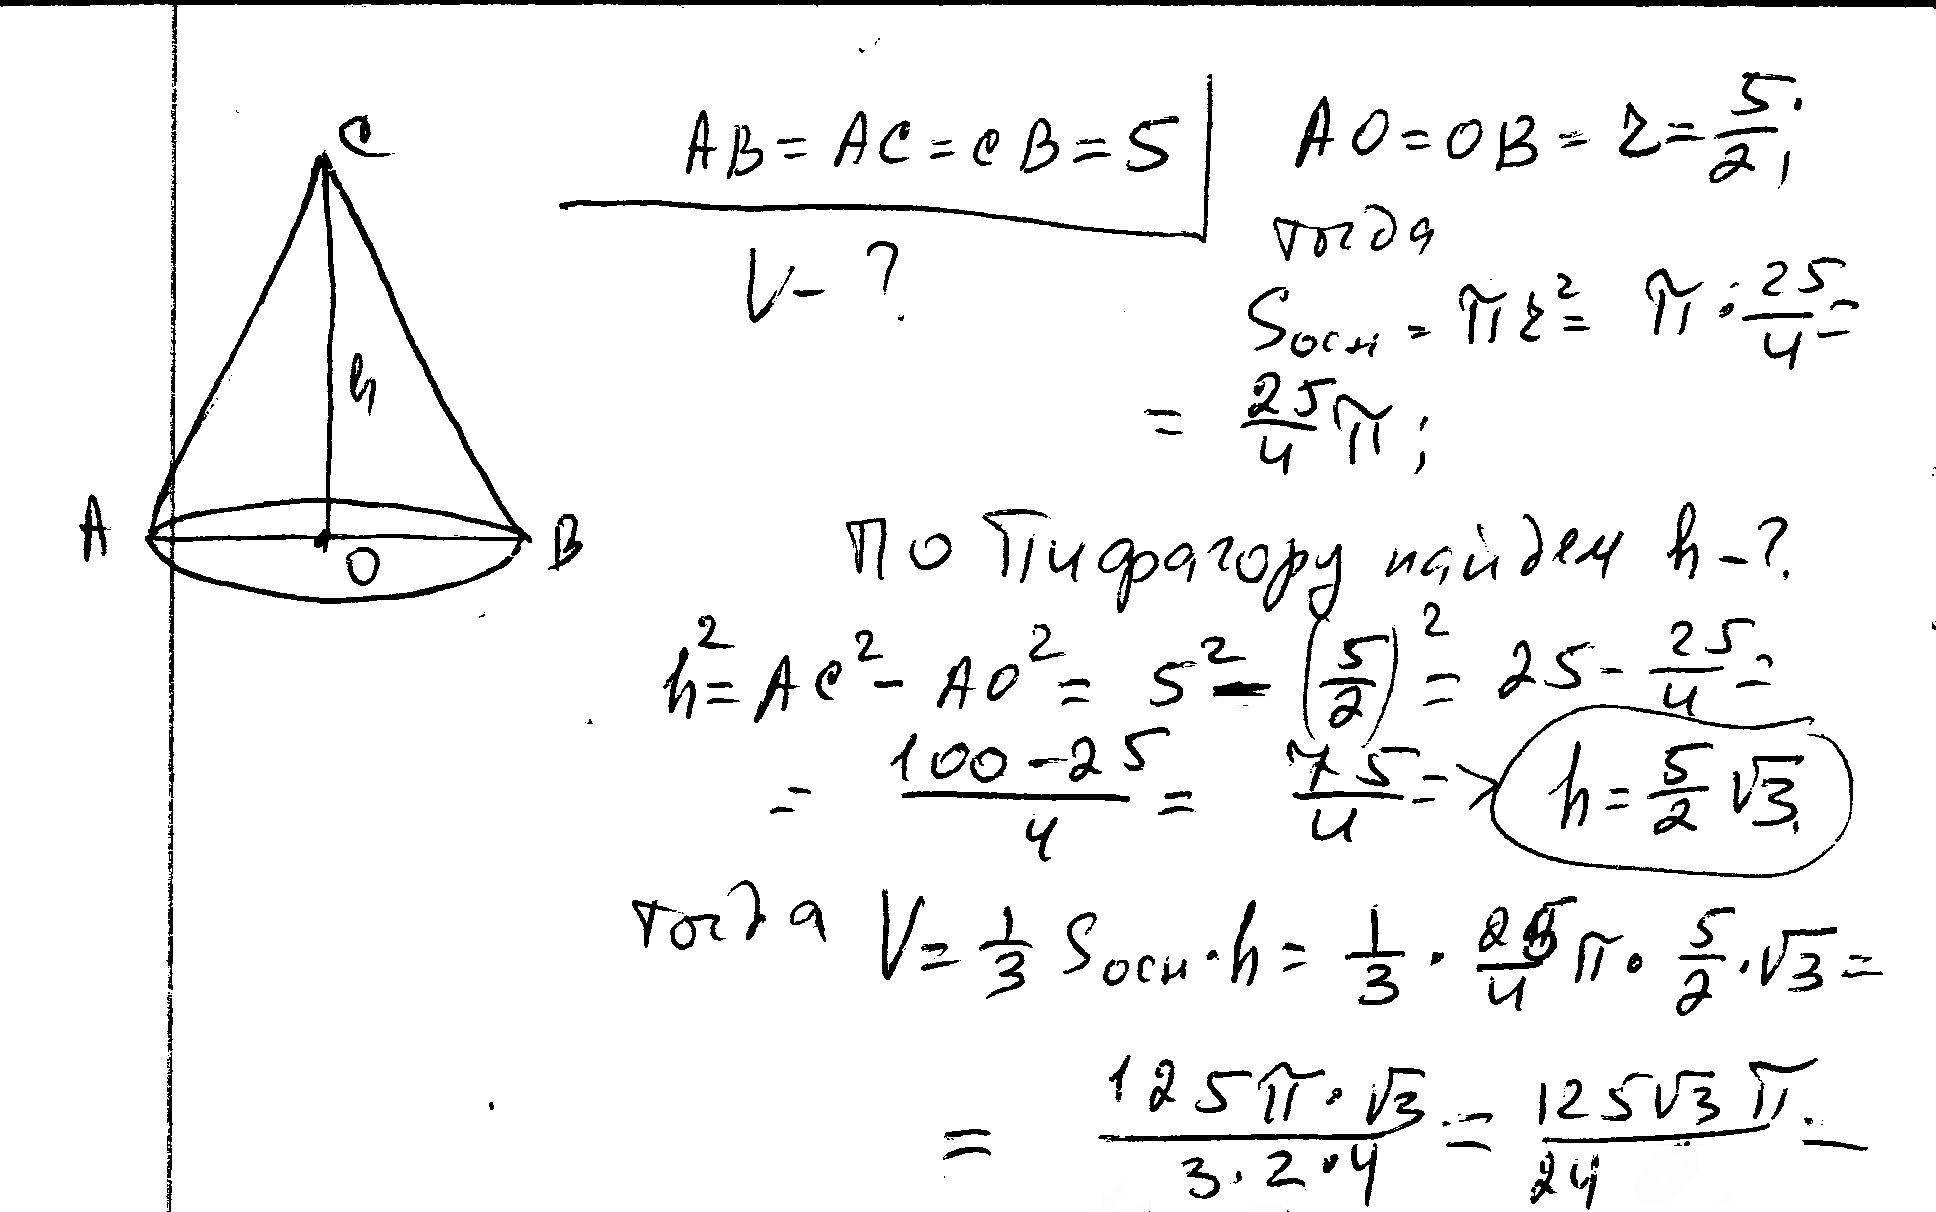 C
h
A
O
B
AB = AC = CB = 5
V - ?
AO = OB = r = 5/2;
тогда
Sосн = πr² = π · 25/4 =
= 25/4 π;
По Пифрагору найдем h - ?
h² = AC² - AO² = 5² - (5/2)² = 25 - 25/4 =
= (100 - 25)/4 = 75/4 => h = 5/2 √3.
тогда V = 1/3 Sосн · h = 1/3 · 25/4 π · 5/2 · √3 =
= (125π · √3)/(3 · 2 · 4) = (125√3 π)/24